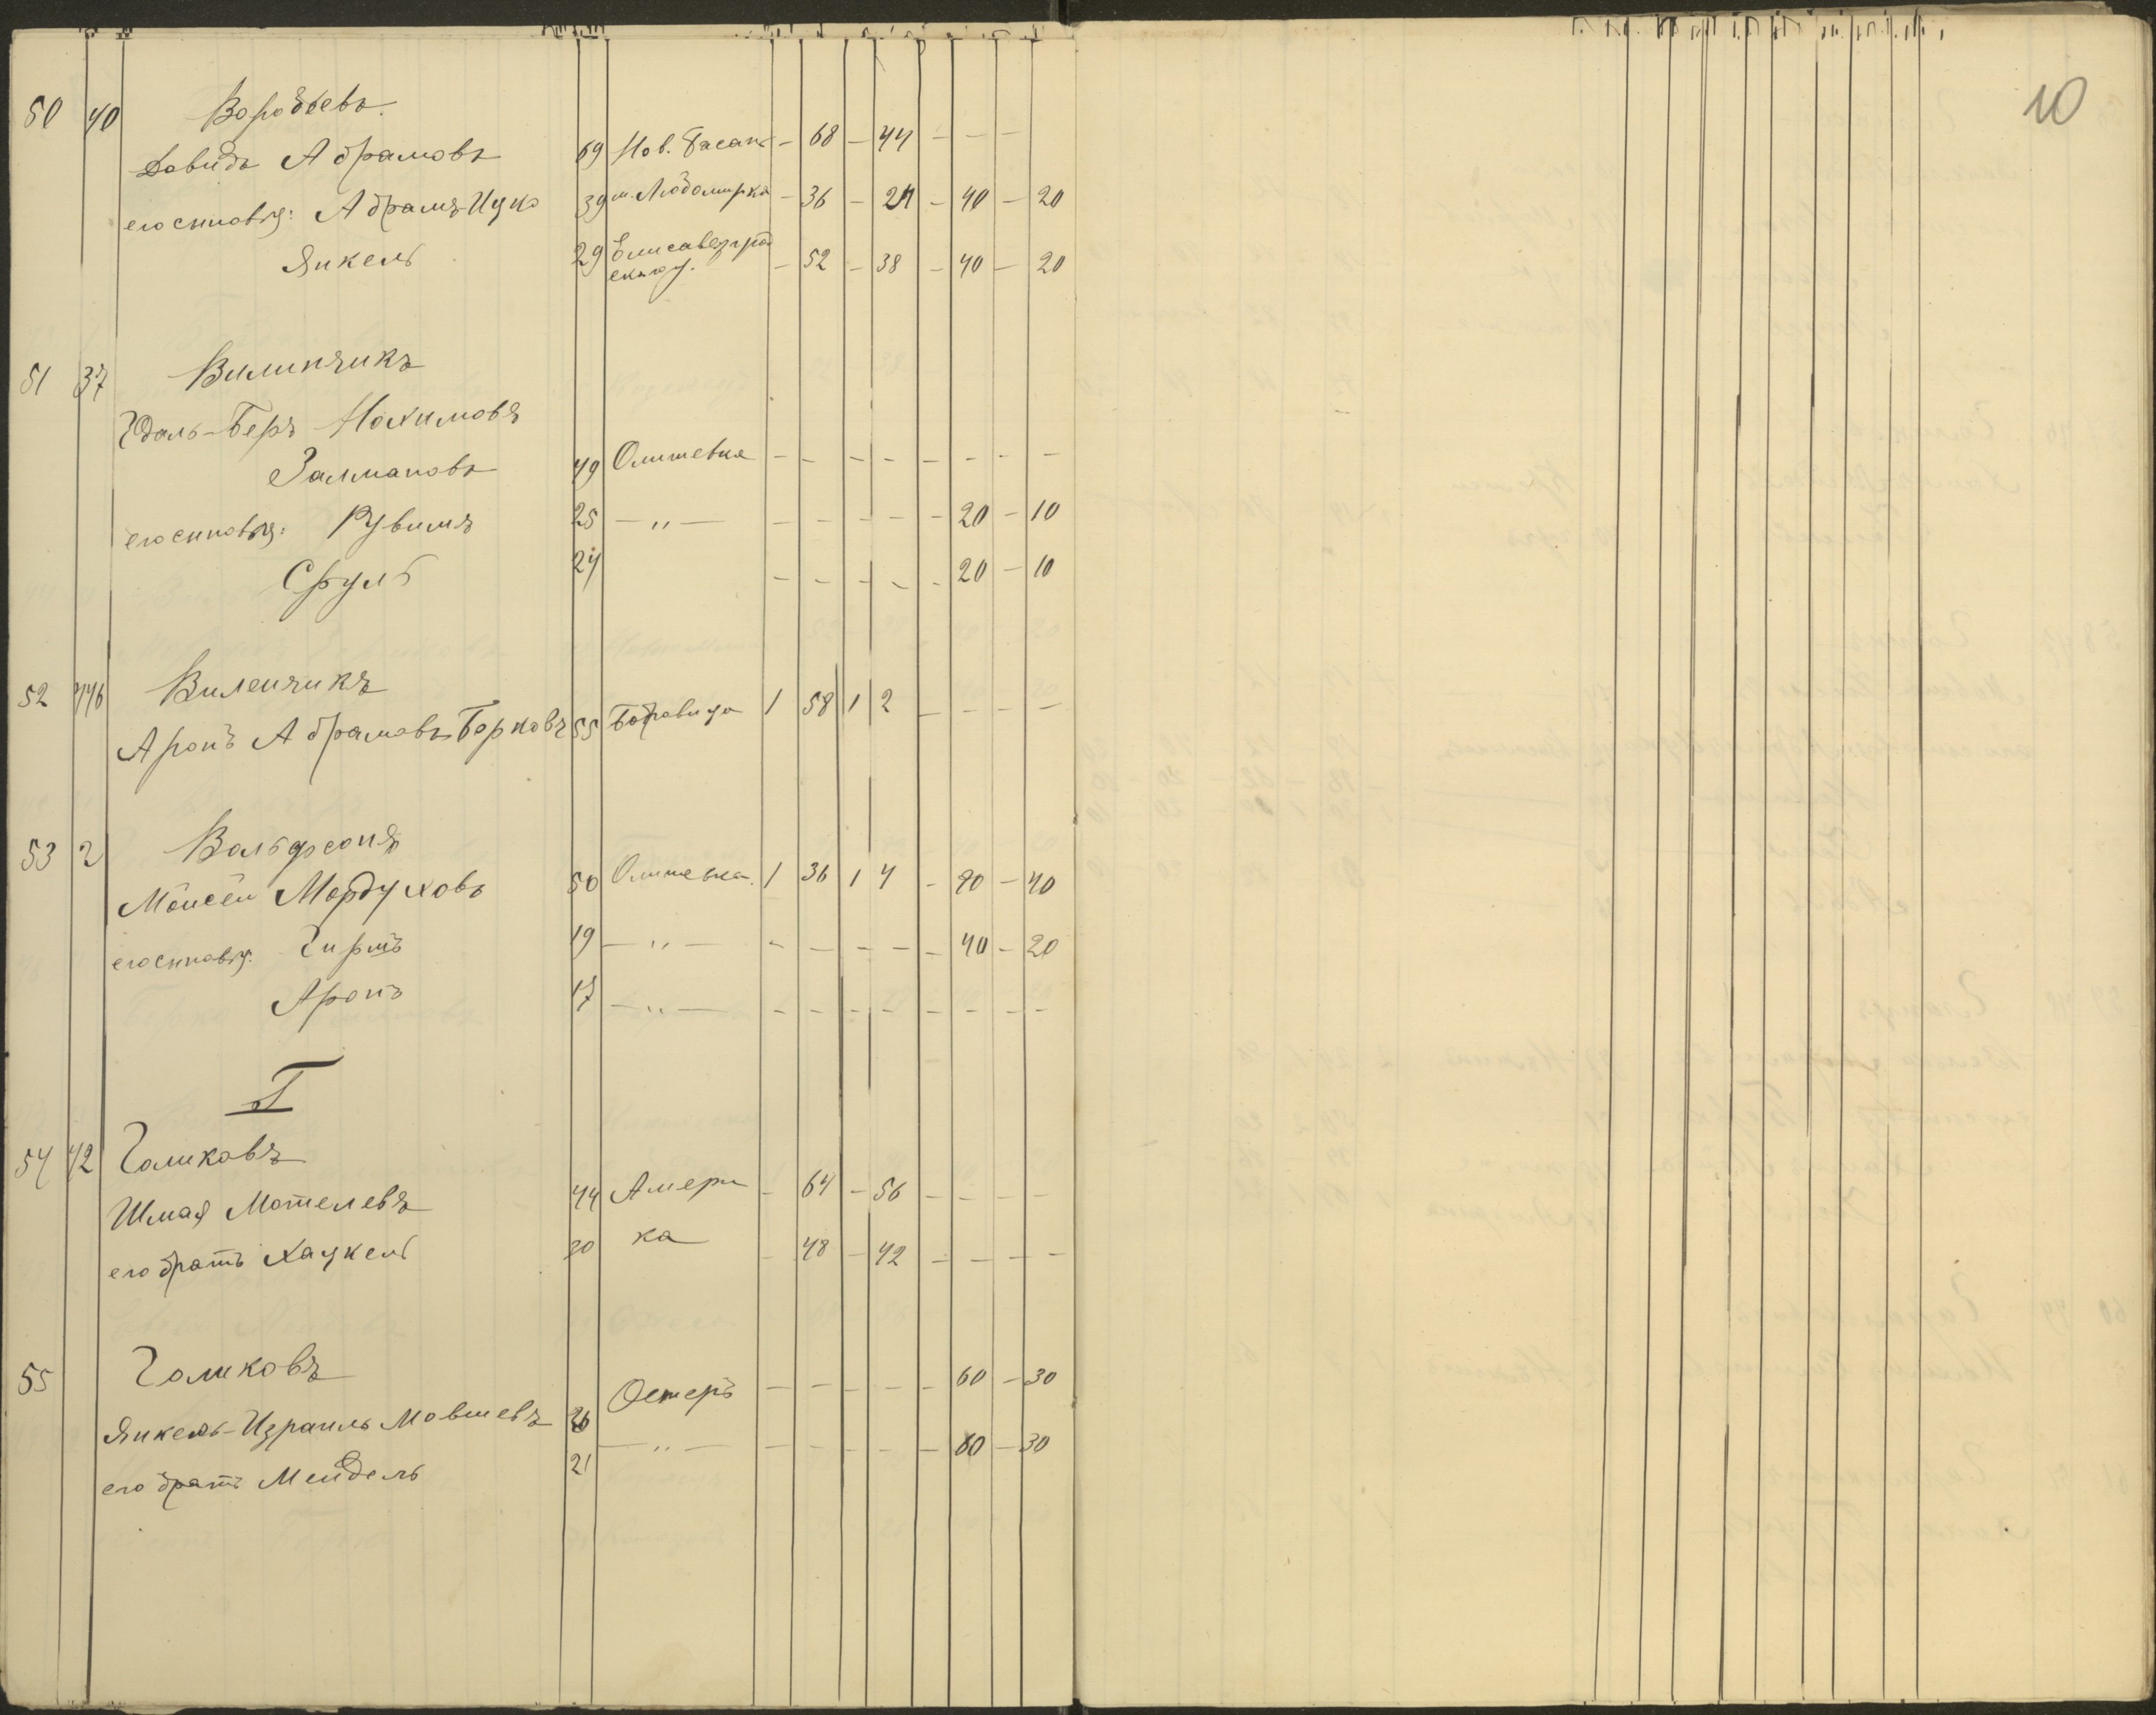 10
50 40 Воробьевъ.
Давидъ Абрамовъ 69 Нов. Басань - 68 - 44 - - -
его сыновья: Абрамъ-Ицко 39 м. Любомирка - 36 - 24 - 40 - 20
Янкель 29 Елисаветград - 52 - 38 - 40 - 20
скаго у.
51 37 Вилинчикъ
Юдаль-Беръ Нохимовъ
Залмановъ 49 Олишевка - - - - - - - -
его сыновья: Рувимъ 25 — „ — - - - - - 20 - 10
Сруль 24 - - - - - 20 - 10
52 446 Виленчикъ
Аронъ Абрамовъ Борковъ 55 Бобровица 1 58 1 2 - - - -
53 2 Вольфсонъ
Мойсей Мордуховъ 50 Олишевка. 1 36 1 4 - 80 - 40
его сыновья: Гиршъ 19 — „ — - - - - - 40 - 20
Аронъ 17 — „ — - - - - - - - -
Г
54 42 Голиковъ
Шмая Мотелевъ 44 Амери - 64 - 56 - - - -
его братъ Хацкель 30 ка - 48 - 42 - - - -
55 Голиковъ
Янкель-Израиль Мовшевъ 26 Остеръ - - - - - 60 - 30
его братъ Мендель 21 — „ — - - - - - 60 - 30